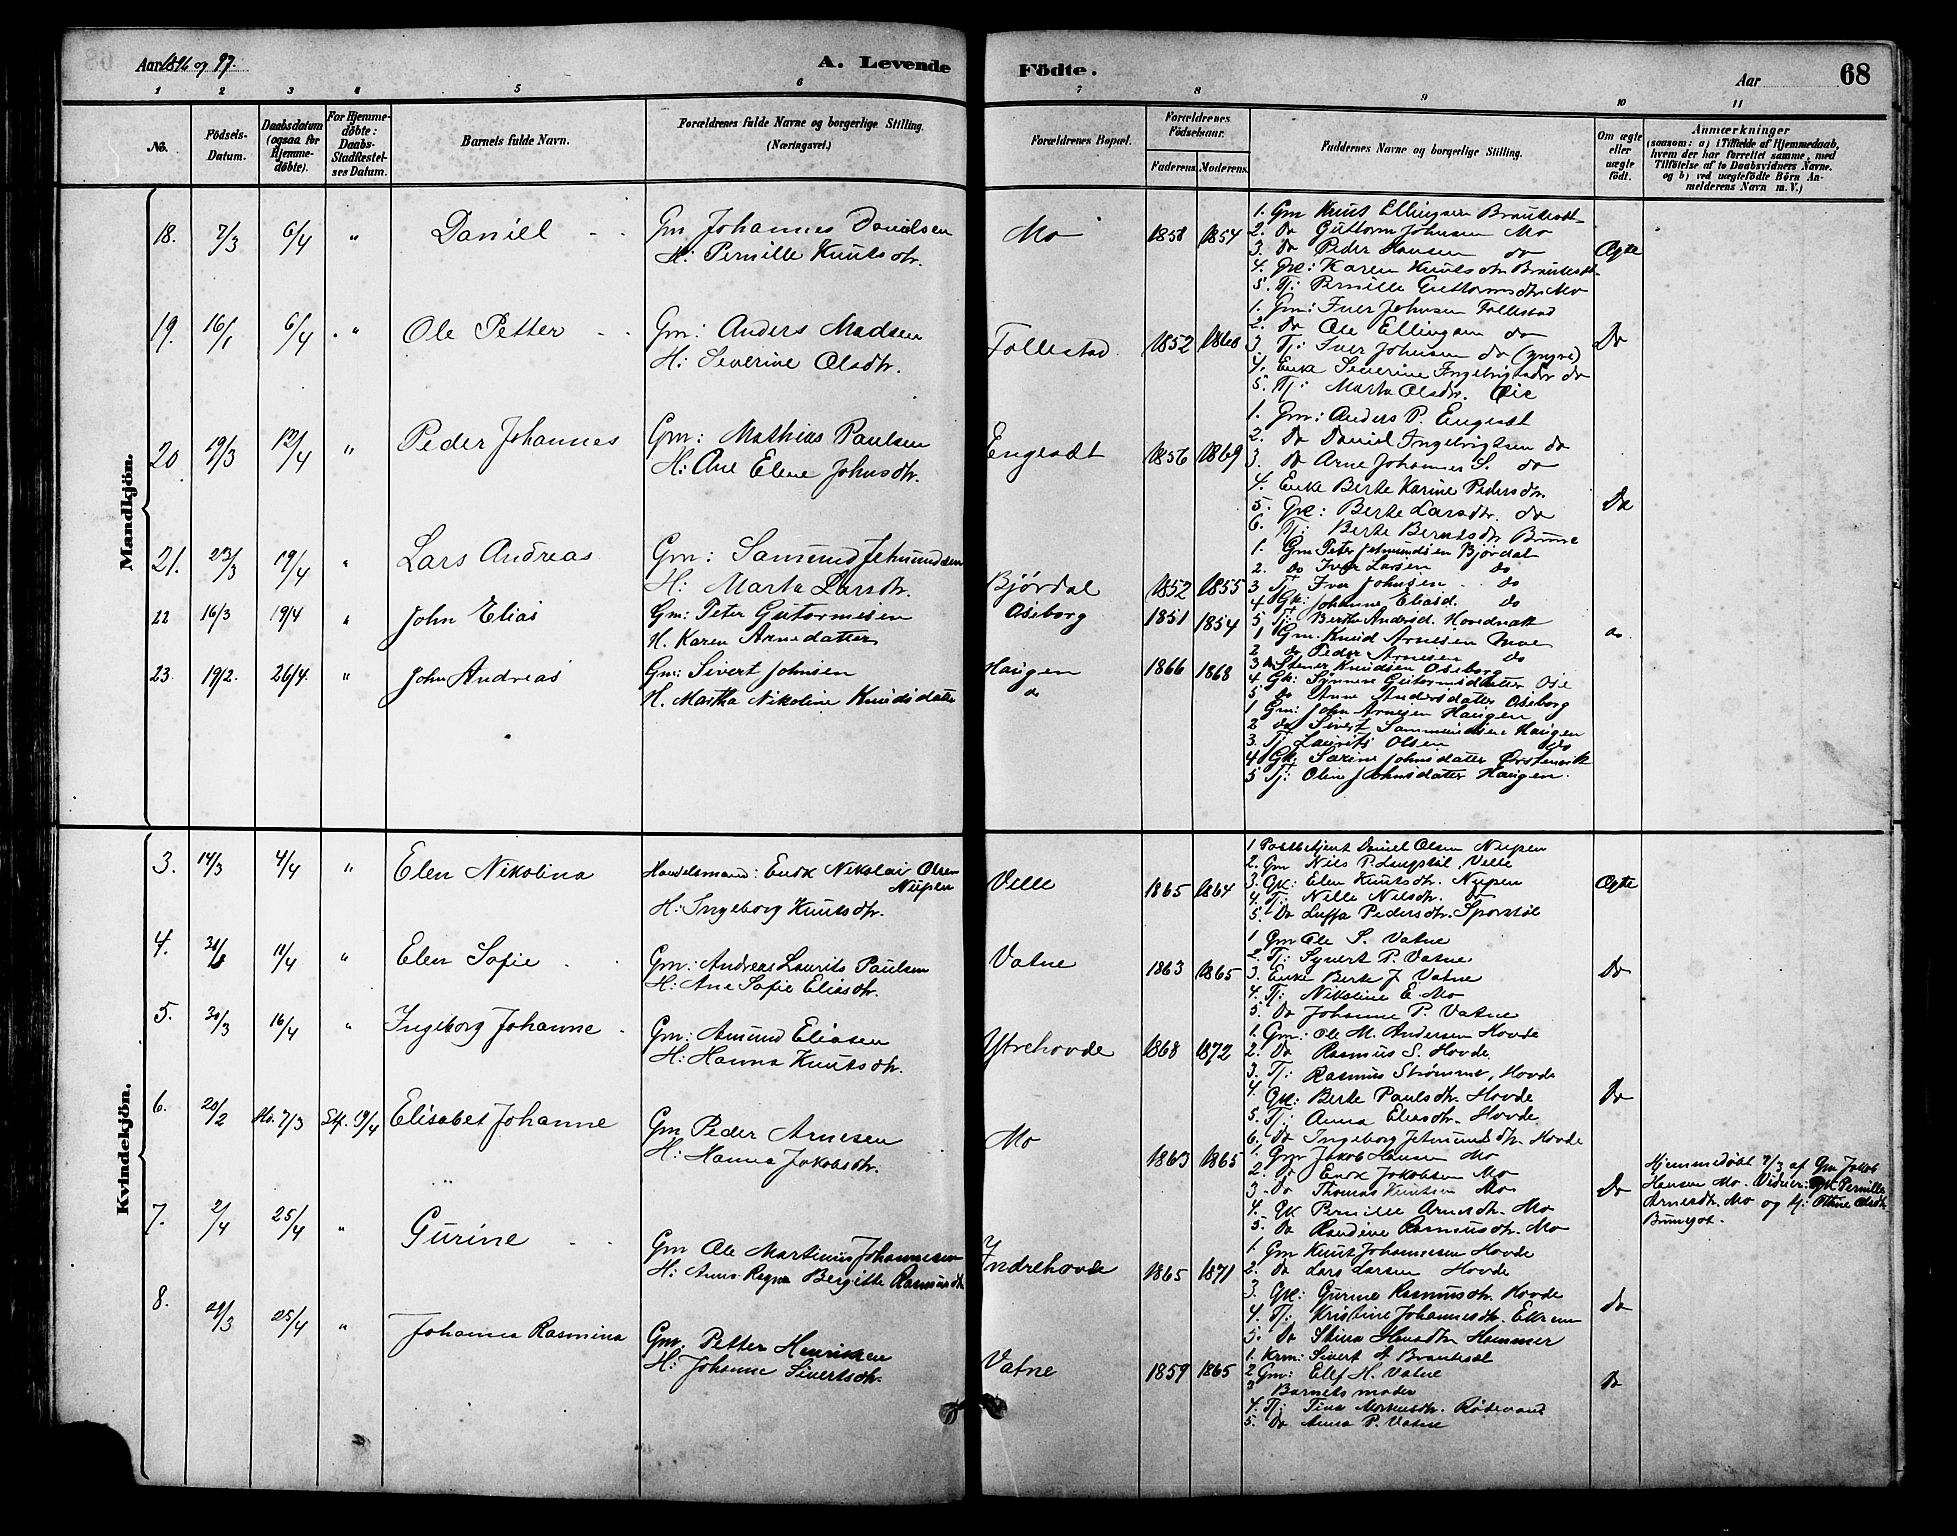 Aar 1896 og 97.
A. Levende Födte.
Aar 68
1 2 3 4 5 6 7 8 9 10 11
No.
Födsels-Datum.
Daabsdatum (ogsaa for Hjemme-døbte).
For Hjemme-døbte: Daabs-Stadfæstel-ses Datum.
Barnets fulde Navn.
Forældrenes fulde Navne og borgerlige Stilling. (Næringsvei.)
Forældrenes Bopæl.
Forældrenes Födselsaar.
Faderens. Moderens.
Faddernes Navne og borgerlige Stilling.
Om ægte eller uægte født.
Anmærkninger
(saasom: a) i Tilfælde af Hjemmedaab,
hvem der har forrettet samme, med
Tilføielse af to Daabsvidners Navne.
og b) ved uægtefødte Börn An-
melderens Navn m.V.)
Mandkjön.
18. 7/3 6/4 " Daniel
Gm Johannes Danielsen
H: Pernille Knutsdtr.
Mo 1851 1854
1. Gm Knut Ellingsen
2. Do Guttorm Johnsen Mo
3. Do Peder Hansen do
4. Gk: Karen Knutsdtr
5. Tj: Pernille Guttormsdtr Mo
Ægte
19. 16/1 6/4 " Ole Petter
Gm: Anders Madsen
H: Severine Olsdtr.
Follestad. 1852 1860
1. Gm: Iver Johnsen Follestad
2. Do Ole Ellingsen do
3. Tj: Iver Johnsen do (yngre)
4. Enke Severine Ingebrigtsdtr do
5. Tj: Marta Olsdtr. Øie
Do
20 19/3 12/4 " Peder Johannes
Gm: Mathias Paulsen
H: Ane Elene Johnsdtr.
Engesæt 1856 1869
1. Gm: Anders P. Engesæt
2. Do Daniel Ingebrigtsen do
3. Do Arne Johannes S. do
4. Enke Berte Karine Pedersdtr.
5. Gk: Berte Larsdtr. do
6. Tj: Berte Berntsdtr
Do
21. 23/3 19/4 " Lars Andreas
Gm: Samund Jetmundsen
H: Marta Larsdtr.
Bjørdal 1852 1855
1. Gm Peter Jetmundsen Bjørdal
2. do Iver Larsen do
3 Tj Iver Johnsen do
4 Gk: Johanne Eliasd. do
5 Tj: Berthe Andersd. Hovdenak
22 16/3 19/4 " John Elias
Gm: Peter Gutormsen
H. Karen Arnedatter
Oseborg 1851 1854
1 Gm. Knud Arnesen Moe
2 do Peder Arnesen do
3 do Stener Knudsen Oseborg
4 Gk: Synneve Gutormsdatter Øie
5 do Anne Andersdatter Oseborg
do
23. 19/2. 26/4. " John Andreas
Gm: Sivert Johnsen
H. Martha Nikoline Knudsdatter
Haugen do 1866 1868
1 Gm: John Arnesen Haugen
2 do Sivert Sammundsen Haugen
3. Tj Laurits Olsen do
4 Gk: Sarine Johnsdatter Ørstenvik
5 Tj: Oline Johnsdatter Haugen.
Kvindekjön.
3. 14/3 4/4 " Elen Nikolina
Handelsmand: Endr. Nikolai Olsen Nupen
H: Ingeborg Knutsdtr.
Velle 1865 1864
1 Postbetjent Daniel Olsen Nupen
2. Gm Nils P. Langstøl, Velle
3. Gk: Elen Knutsdtr. Nupen
4. Tj: Nelle Nilsdtr. do
5. Do Luffa Pedersdtr. Sporstøl
Ægte
4. 11/4 " Elen Sofie
Gm: Andreas Laurits Paulsen
H: Ane Sofie Eliasdtr.
Vatne 1863 1865
1 Gm Ole S. Vatne
2. Tj: Syvert P. Vatne
3. Enke Berte J. Vatne
4. Tj: Nikoline E. Mo
5. Do Johanne P. Vatne
Do
5. 30/3 16/4 " Ingeborg Johanne
Gm: Amund Eliasen
H: Hanna Knutsdtr.
Ytrehovde 1868 1872
1. Gm: Ole M. Andersen Hovde
2. Do Rasmus S. Hovde.
3. Tj: Rasmus Strømme, Hovde
4. Gk: Berte Paulsdtr. Hovde
5. Tj: Anna Eliasdtr. Hovde
6. Do Ingeborg Jetmundsdtr. Hovde
Do
6. 20/2 Hd. 7/3 Stf. 19/4 Elisabet Johanne
Gm Peder Arnesen
H: Hanna Jakobsdtr.
Mo 1863 1865
1. Gm Jakob Hansen Mo
2. Do Endr Jakobsen Mo
3. Do Thomas Knutsen Mo
4. Gk Pernille Arnesdtr. Mo
5. Do Randine Rasmusdtr. Mo
Do
Hjemmedøbt 7/3 af Gm Jakob
Hansen Mo. Vidner: Gk Pernille
Arnesdtr. Mo og tj: Oline Olsdtr.
7. 2/4 25/4 " Gurine
Gm Ole Martinus Johannesen
H: Anne Regine Bergitte Rasmusdtr
Indrehovde 1865 1871
1. Gm Knut Johannesen Hovde
2. Do Lars Larsen Hovde
3. Gk: Gurine Rasmusdtr. Hovde
4. Tj: Kristine Johannesdtr. Ekrem
5. Do Stina Hansdtr. Hammer
Do
8. 29/3 25/4 " Johanna Rasmina
Gm Petter Henriksen
H: Johanne Sivertsdtr.
Vatne 1859 1865
1. Krm: Sivert A
2 Gm: Elef H. Vatne
3 Barnets moder
4. Tj: Tina Mortensdtr. Rødevand
5. Do Anna P. Vatne
Do